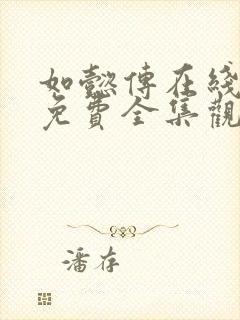 如懿傳在綫
免費全集觀
潘存